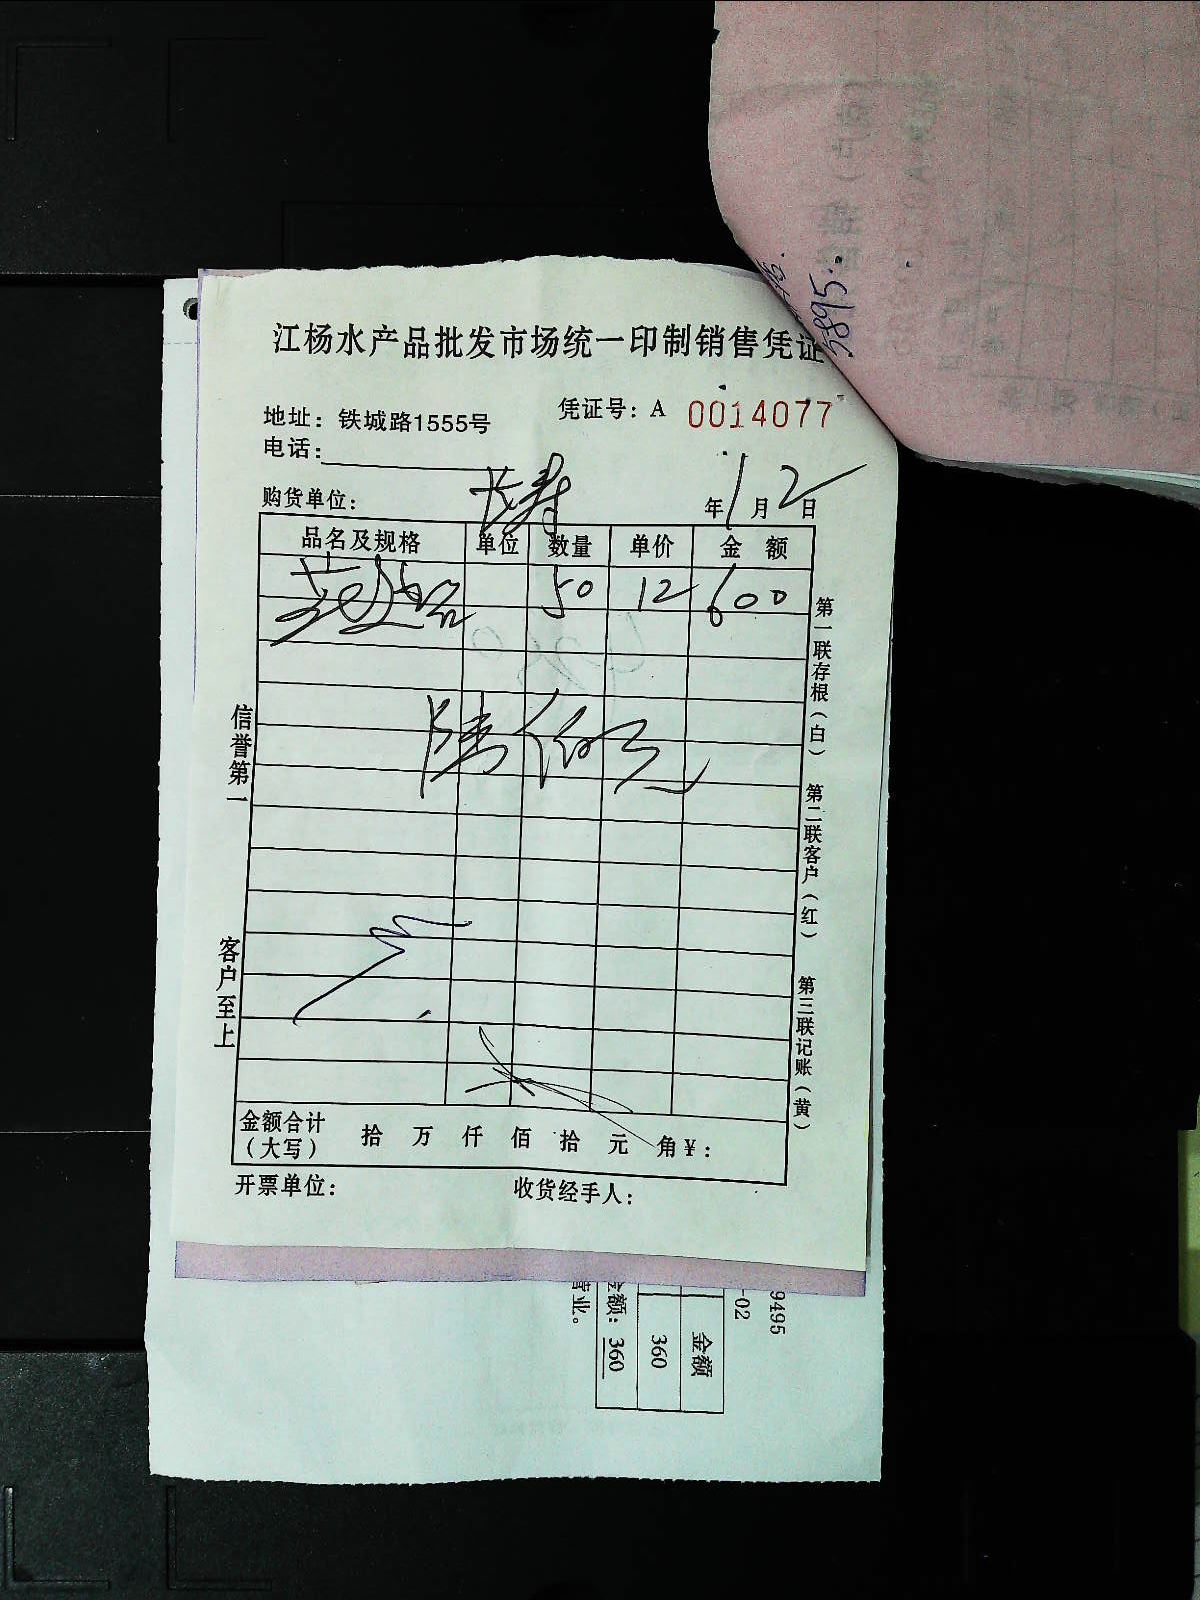 江杨水产品批发市场统一印制销售凭证
地址：铁城路1555号
凭证号：A 0014077
电话：
购货单位： 长寿
年1月2日
品名及规格 单位 数量 单价 金 额
50 12 600
陆佰元
金额合计（大写） 拾 万 仟 佰 拾 元 角￥：
开票单位： 收货经手人：
信誉第一
客户至上
第一联存根（白）
第二联客户（红）
第三联记账（黄）
5895.
9495
-02
金额
360
金额：360
营业。